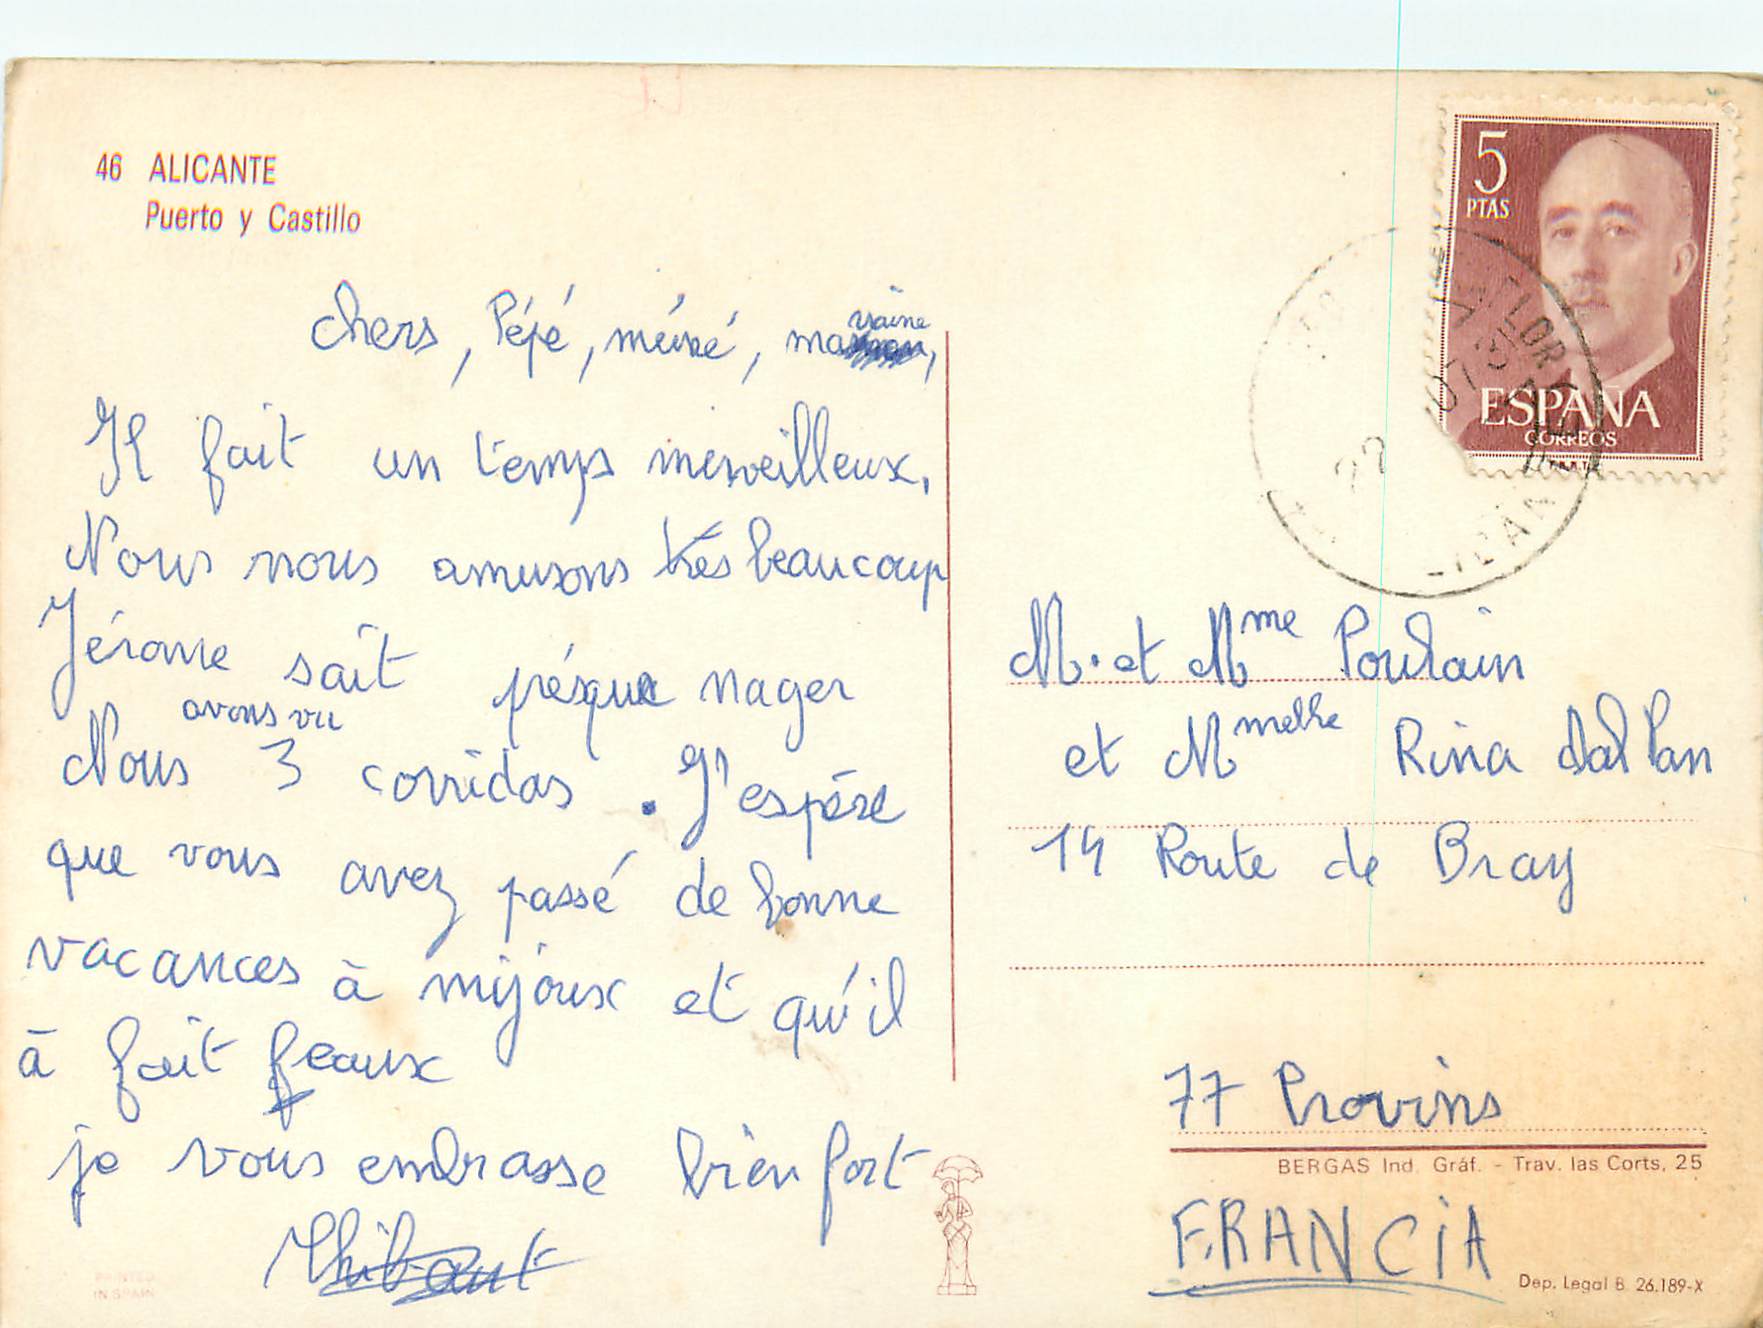 46 ALICANTE
Puerto y Castillo
5
PTAS
ESPAÑA
CORREOS
chers, Pépé, mémé, marraine,
Il fait un temps merveilleux,
Nous nous amusons très beaucoup
Jérome sait présque nager
avons vu
Nous 3 corridas. J'espére
que vous avez passé de bonne
vacances à mijoux et qu'il
à fait feaux
je vous embrasse bien fort
Thibaut
M. et Mme Poulain
et Mmelhe Rina Dal Pan
14 Route de Bray
77 Provins
BERGAS Ind. Gráf. - Trav. las Corts, 25
FRANCiA
Dep. Legal B. 26.189-X
PRINTED
IN SPAIN